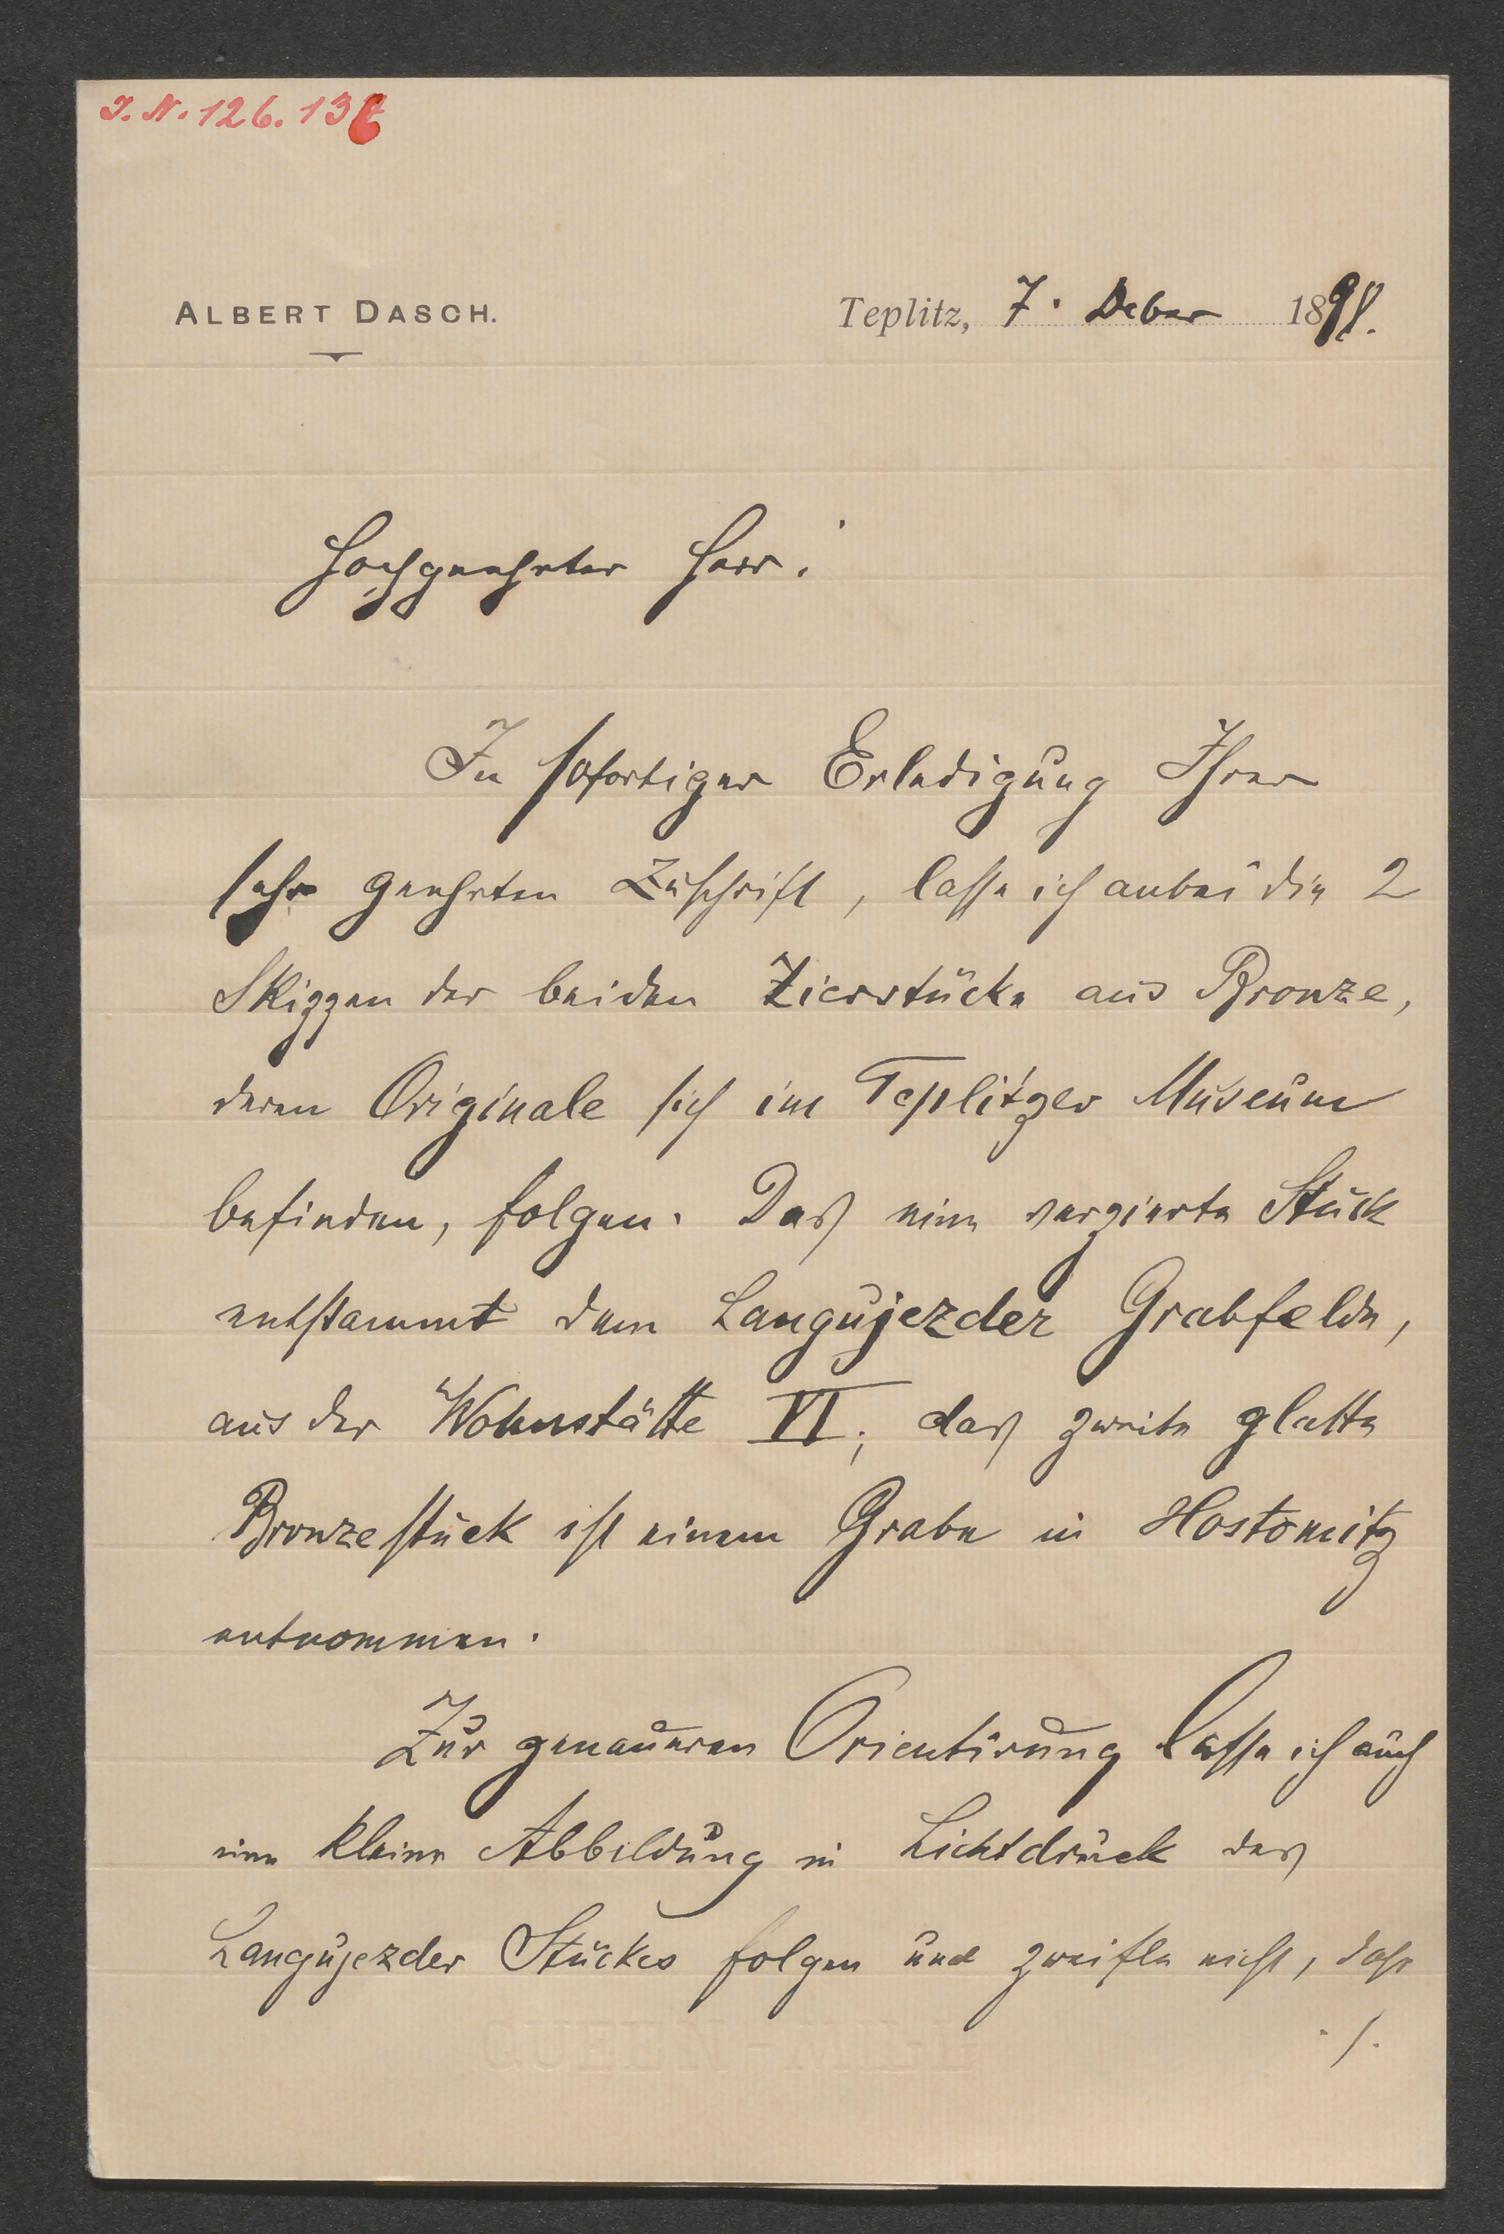 I. N. 126.136
ALBERT DASCH.
Teplitz, 7. Deber 1898.
Hochgeehrter Herr!
In sofortiger Erledigung Ihrer
sehr geehrten Zuschrift, lasse ich anbei die 2
Skizzen der beiden Zierstücke aus Bronze,
deren Originale sich im Teplitzer Museum
befinden, folgen. Das eine verzierte Stück
entstammt dem Langujezder Grabfelde,
aus der Wohnstätte VI; das zweite glatte
Bronzestück ist einem Grabe in Hostomitz
entnommen.
Zur genaueren Orientirung lasse ich auch
eine kleine Abbildung in Lichtdruck des
Langujezder Stückes folgen und zweifle nicht, dass
./.